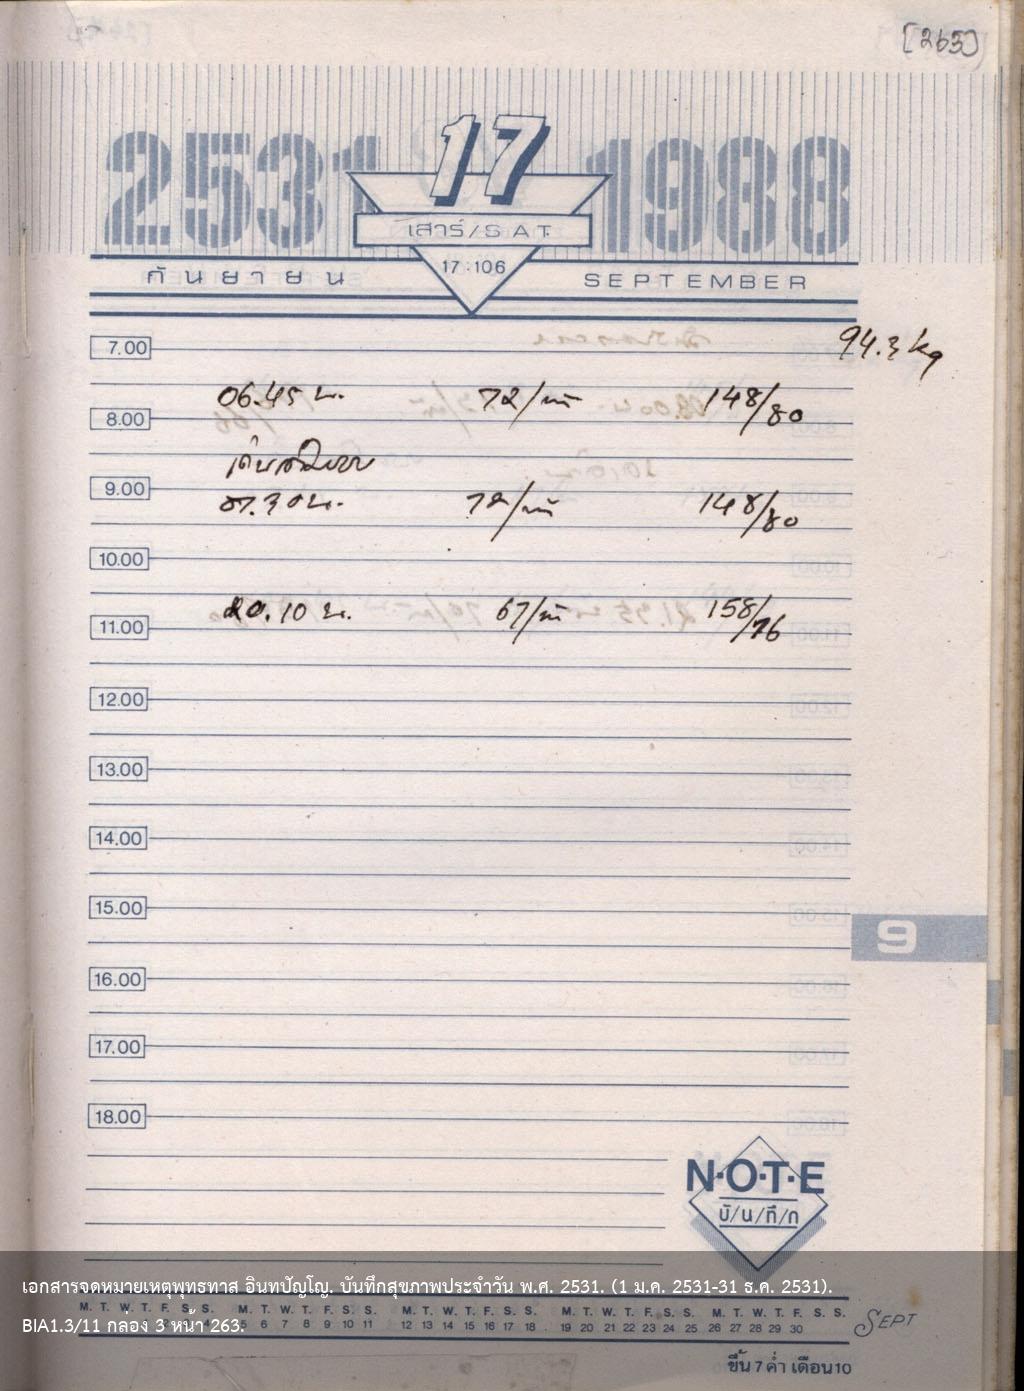 [263]
2531 17 1988
เสาร์/SAT.
17:106
กันยายน SEPTEMBER
7.00 94.3 kg
06.45 น. 72/นาที 148/80
8.00
9.00
07.30 น. 72/นาที 148/80
10.00
20.10 น. 67/นาที 158/76
11.00
12.00
13.00
14.00
15.00
9
16.00
17.00
18.00
N·O·T·E
บั/น/ทึ/ก
เอกสารจดหมายเหตุพุทธทาส อินทปัญโญ. บันทึกสุขภาพประจำวัน พ.ศ. 2531. (1 ม.ค. 2531-31 ธ.ค. 2531).
M. T. W. T. F. S. S. M. T. W. T. F. S. S. M. T. W. T. F. S. S. M. T. W. T. F. S. S. M. T. W. T. F. S. S.
BIA1.3/11 กล่อง 3 หน้า 263.
5 6 7 8 9 10 11 12 13 14 15 16 17 18 19 20 21 22 23 24 25 26 27 28 29 30 SEPT
ขึ้น 7 ค่ำ เดือน 10